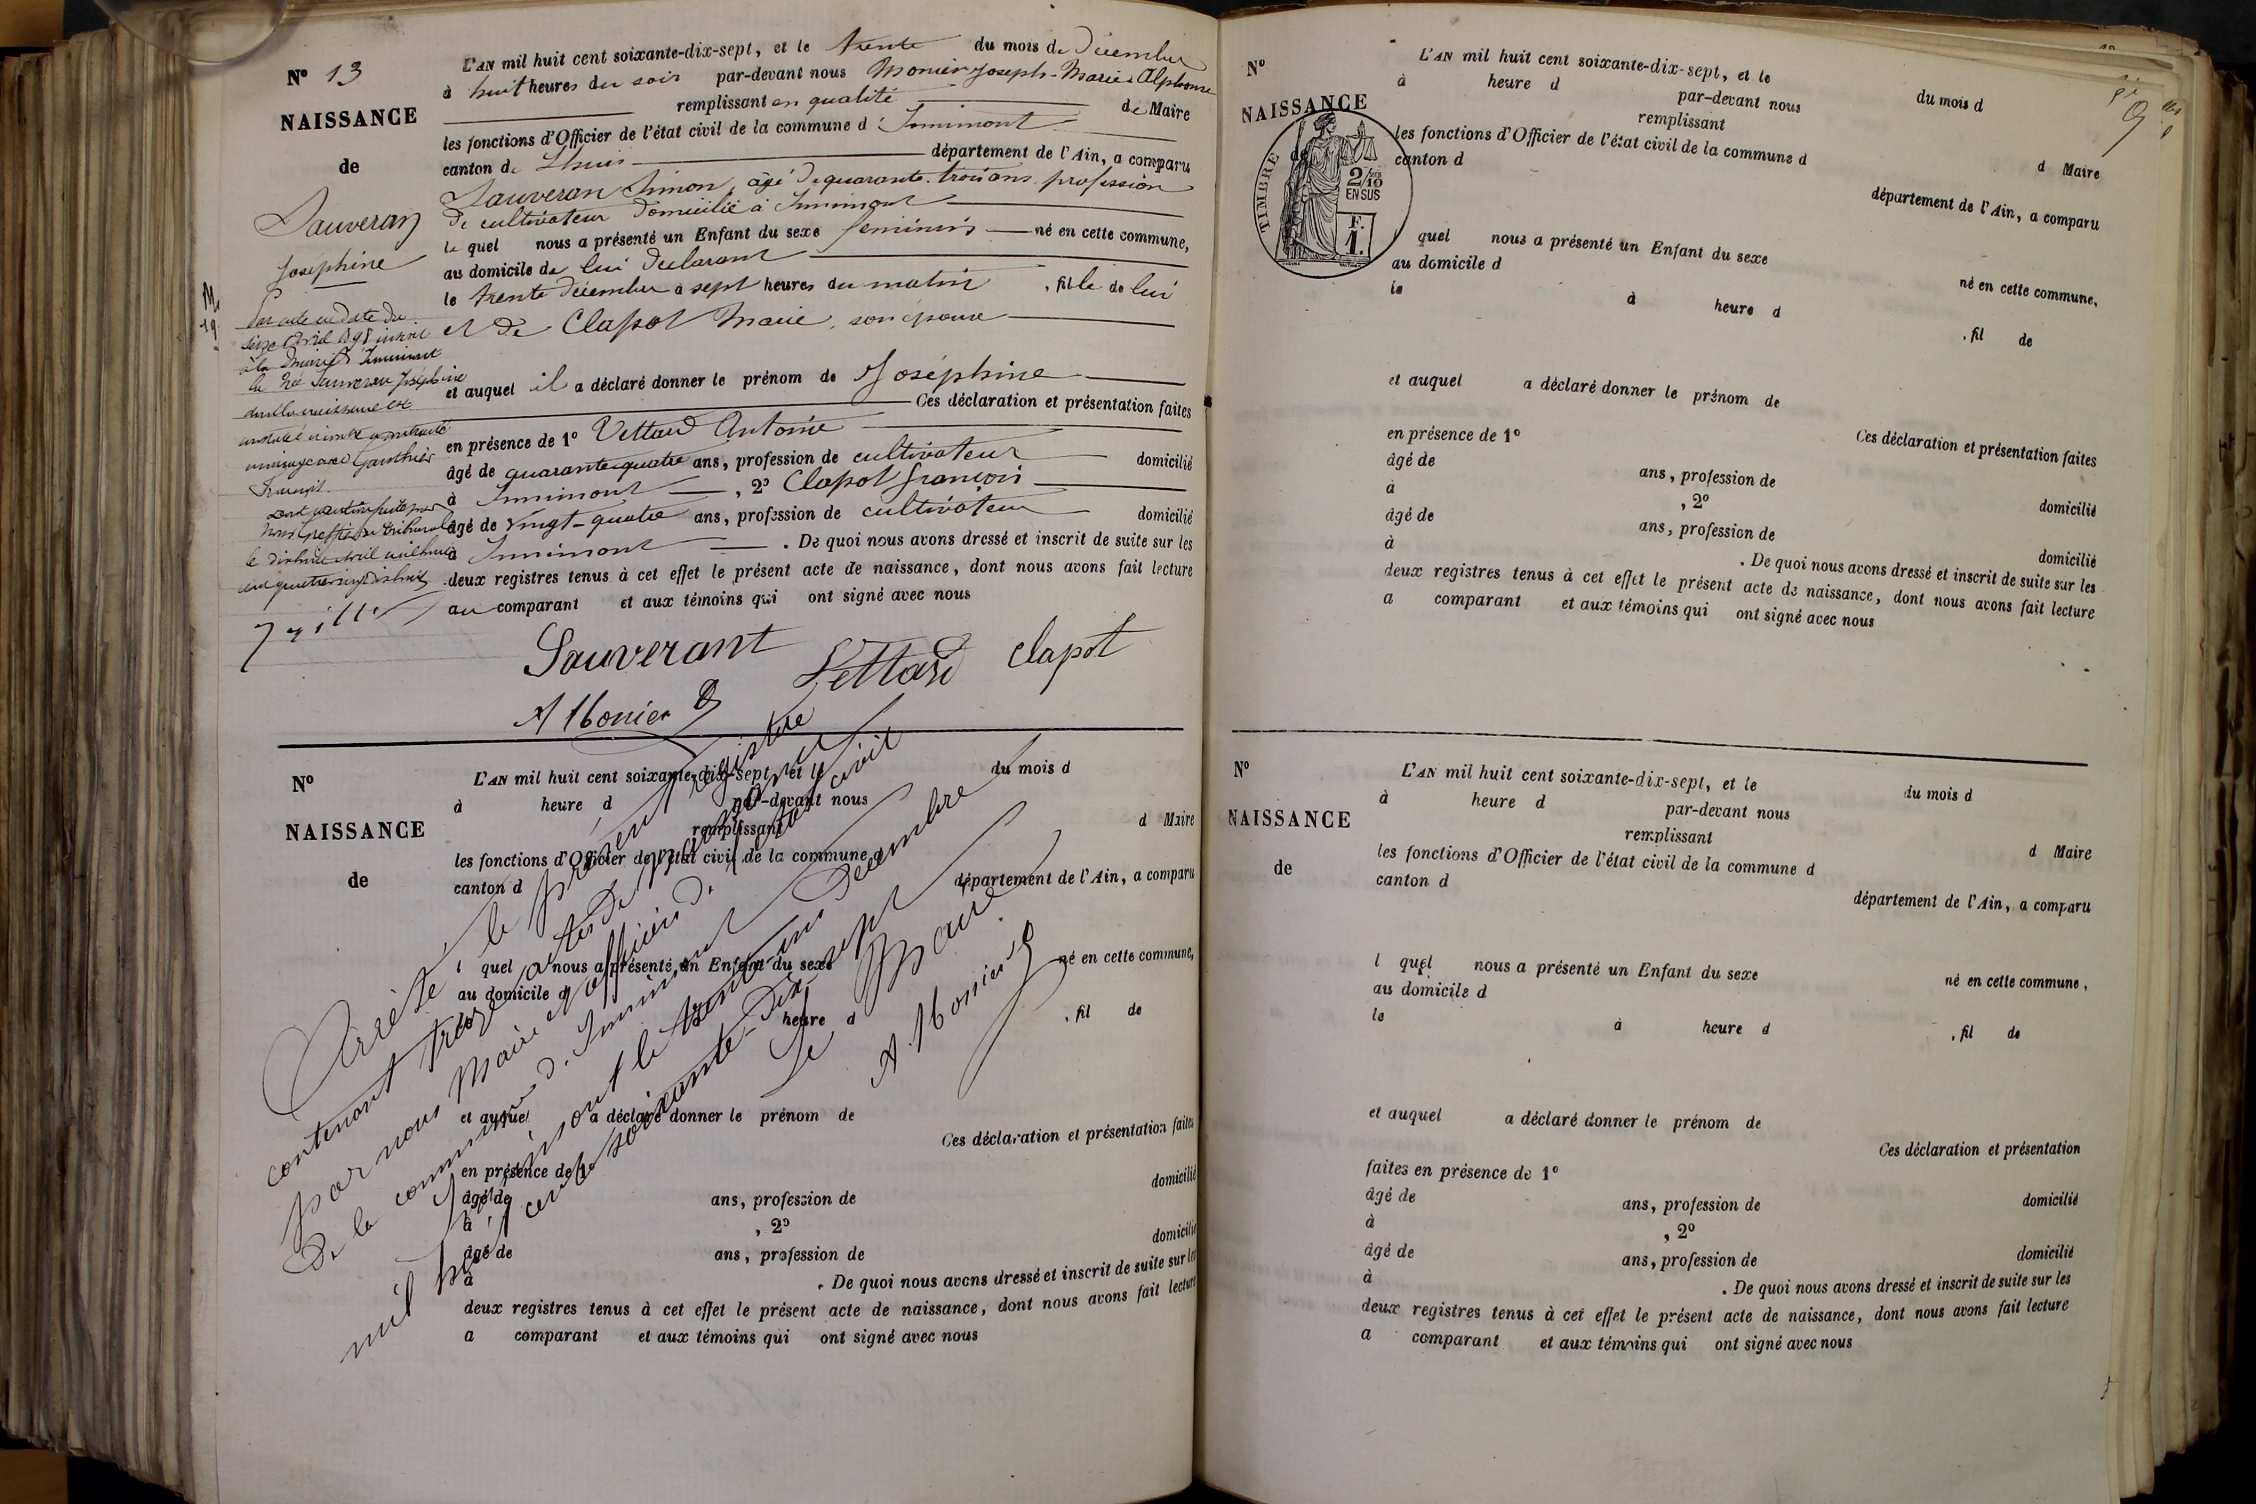 N° 13
NAISSANCE
de
Sauveran
Joséphine
L'AN mil huit cent soixante-dix-sept, et le trente du mois de décembre
à huit heures du soir par-devant nous Monier Joseph-Marie-Alphonse
remplissant en qualité de Maire
les fonctions d'Officier de l'état civil de la commune d'Innimont
canton de Lhuis département de l'Ain, a comparu
Sauveran Simon, âgé de quarante-trois ans profession
de cultivateur domicilié à Innimont
le quel nous a présenté un Enfant du sexe feminin né en cette commune,
au domicile de lui déclarant
le trente décembre à sept heures du matin, fille de lui
et de Clapot Marie, son épouse
et auquel il a déclaré donner le prénom de Joséphine
Ces déclaration et présentation faites
en présence de 1° Vettard Antoine
âgé de quarante-quatre ans, profession de cultivateur domicilié
à Innimont, 2° Clapot françois
âgé de vingt-quatre ans, profession de cultivateur domicilié
à Innimont. De quoi nous avons dressé et inscrit de suite sur les
deux registres tenus à cet effet le présent acte de naissance, dont nous avons fait lecture
au comparant et aux témoins qui ont signé avec nous
Par acte en date du
seize avril 1898 inscrit
à la mairie d'Innimont
la née Sauveran Joséphine
dont la naissance est
constatée ci-contre a contracté
mariage avec Gauthier
François.
nous greffier du tribunal
le dix huit avril mil huit
cent quatre vingt dix huit
Sauverant Vettard Clapot
A Monier
N°
NAISSANCE
de
L'AN mil huit cent soixante-dix-sept, et le du mois d
à heure d par-devant nous
remplissant d Maire
les fonctions d'Officier de l'état civil de la commune d
canton d département de l'Ain, a comparu
l quel nous a présenté un Enfant du sexe né en cette commune,
au domicile d
le heure d , fil de
et auquel a déclaré donner le prénom de
Ces déclaration et présentation faites
en présence de 1°
âgé de ans, profession de domicilié
à , 2°
âgé de ans, profession de domicilié
à . De quoi nous avons dressé et inscrit de suite sur les
deux registres tenus à cet effet le présent acte de naissance, dont nous avons fait lecture
a comparant et aux témoins qui ont signé avec nous
Arrêté le présent registre
contenant treize actes de naissance
par nous Maire et officier de l'état civil
de la commune d'Innimont
à Innimont le trente-un décembre
mil huit cent soixante-dix-sept
Le Maire
A. Monier
N°
NAISSANCE
de
TIMBRE
2/10
EN SUS
F.
1.
L'AN mil huit cent soixante-dix-sept, et le du mois d
à heure d par-devant nous
remplissant d Maire
les fonctions d'Officier de l'état civil de la commune d
canton d département de l'Ain, a comparu
quel nous a présenté un Enfant du sexe né en cette commune,
au domicile d
le à heure d , fil de
et auquel a déclaré donner le prénom de
Ces déclaration et présentation faites
en présence de 1°
âgé de ans, profession de domicilié
à , 2°
âgé de ans, profession de domicilié
à . De quoi nous avons dressé et inscrit de suite sur les
deux registres tenus à cet effet le présent acte de naissance, dont nous avons fait lecture
a comparant et aux témoins qui ont signé avec nous
N°
NAISSANCE
de
L'AN mil huit cent soixante-dix-sept, et le du mois d
à heure d par-devant nous
remplissant d Maire
les fonctions d'Officier de l'état civil de la commune d
canton d département de l'Ain, a comparu
l quel nous a présenté un Enfant du sexe né en cette commune,
au domicile d
le à heure d , fil de
et auquel a déclaré donner le prénom de
Ces déclaration et présentation
faites en présence de 1°
âgé de ans, profession de domicilié
à , 2°
âgé de ans, profession de domicilié
à . De quoi nous avons dressé et inscrit de suite sur les
deux registres tenus à cet effet le présent acte de naissance, dont nous avons fait lecture
a comparant et aux témoins qui ont signé avec nous